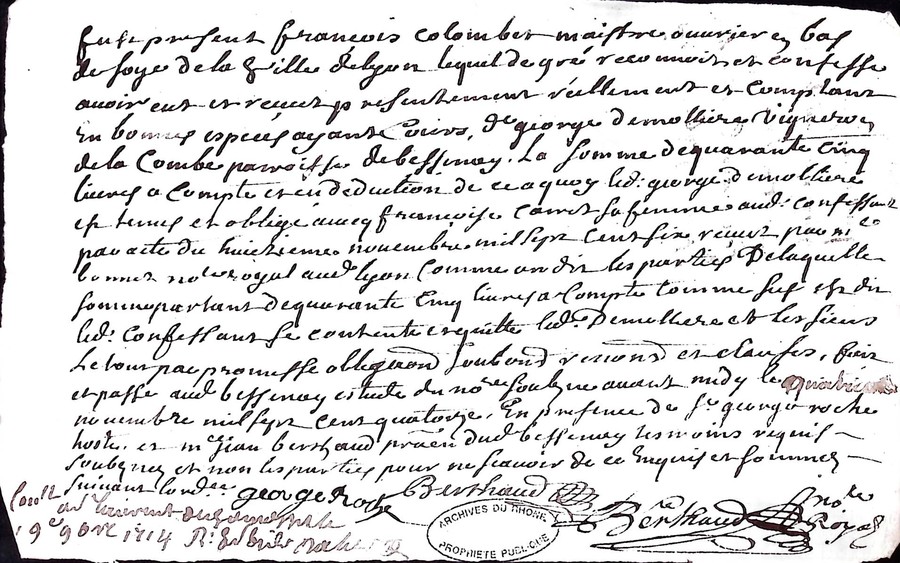 fust present françois colomber maistre ouvrier en bas
de soye de la Ville de Lyon lequel de gré reconnoit et confesse
avoir eut et receut presentement réellement et comptant
en bonnes especes ayants cours, de george Demolliere Vigneron
de la Combe paroisse de bessenay. La somme de quarante cinq
livres a compte et en deduction de ce a quoy led: george demolliere
est tenus et obligé avecq françoise sa femme aud: confessant
par acte du huictieme novembre mil sept cent six receut par me
bonnet nore royal aud lyon comme on dit les parties De laquelle
somme partant de quarante Cinq livres a Compte comme sus est dit
led: Confessant se contente et quitte led: Demolliere et les siens
Le tout par promesse obligaond soubond renond et clauses, fait
et passe aud bessenay estude du nore soubne avant midy le quatrieme
novembre mil sept cent quatorze, En presence de sr george roche
hoste et me jean berthaud praen dud bessenay tesmoins requis
soubnez et non les parties pour ne scavoir de ce enquis et sommez
suivant lordce george Roche Berthaud
Berthaud nore Royal
Conlle
19e 9bre 1714
ARCHIVES DU RHONE
PROPRIETE PUBLIQUE